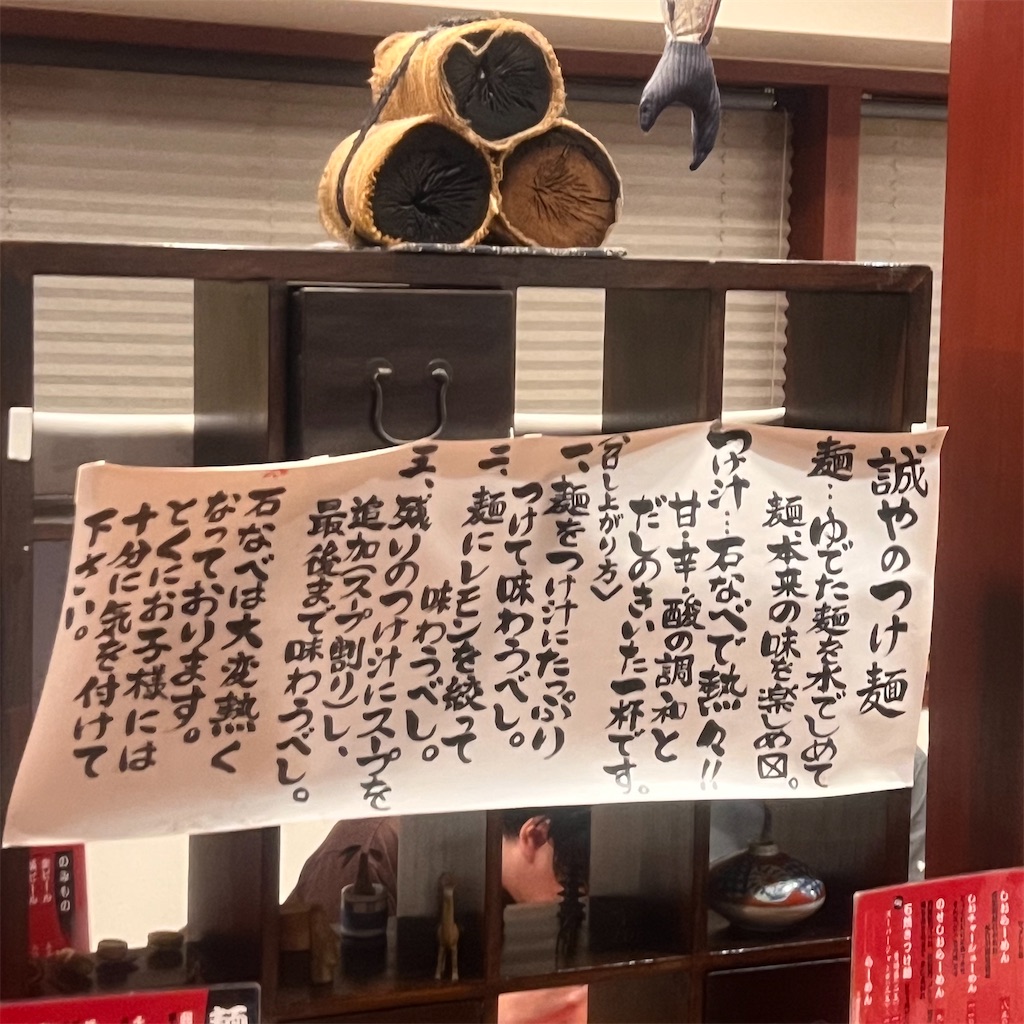 誠やのつけ麺
麺…ゆでた麺を水でしめて
麺、本来の味を楽しめ〼。
つけ汁…石なべで熱々!!
甘・辛・酸の調和と
だしのきいた一杯です。
〈召し上がり方〉
一、麺をつけ汁にたっぷり
つけて味わうべし。
二、麺にレモンを絞って
味わうべし。
三、残りのつけ汁にスープを
追加(スープ割り)し、
最後まで味わうべし。
石なべは大変熱く
なっております。
とくにお子様には
十分に気を付けて
下さい。
のみもの
麺
しおらーめん
しおチャーシューめん
のせしおらーめん
らーめん